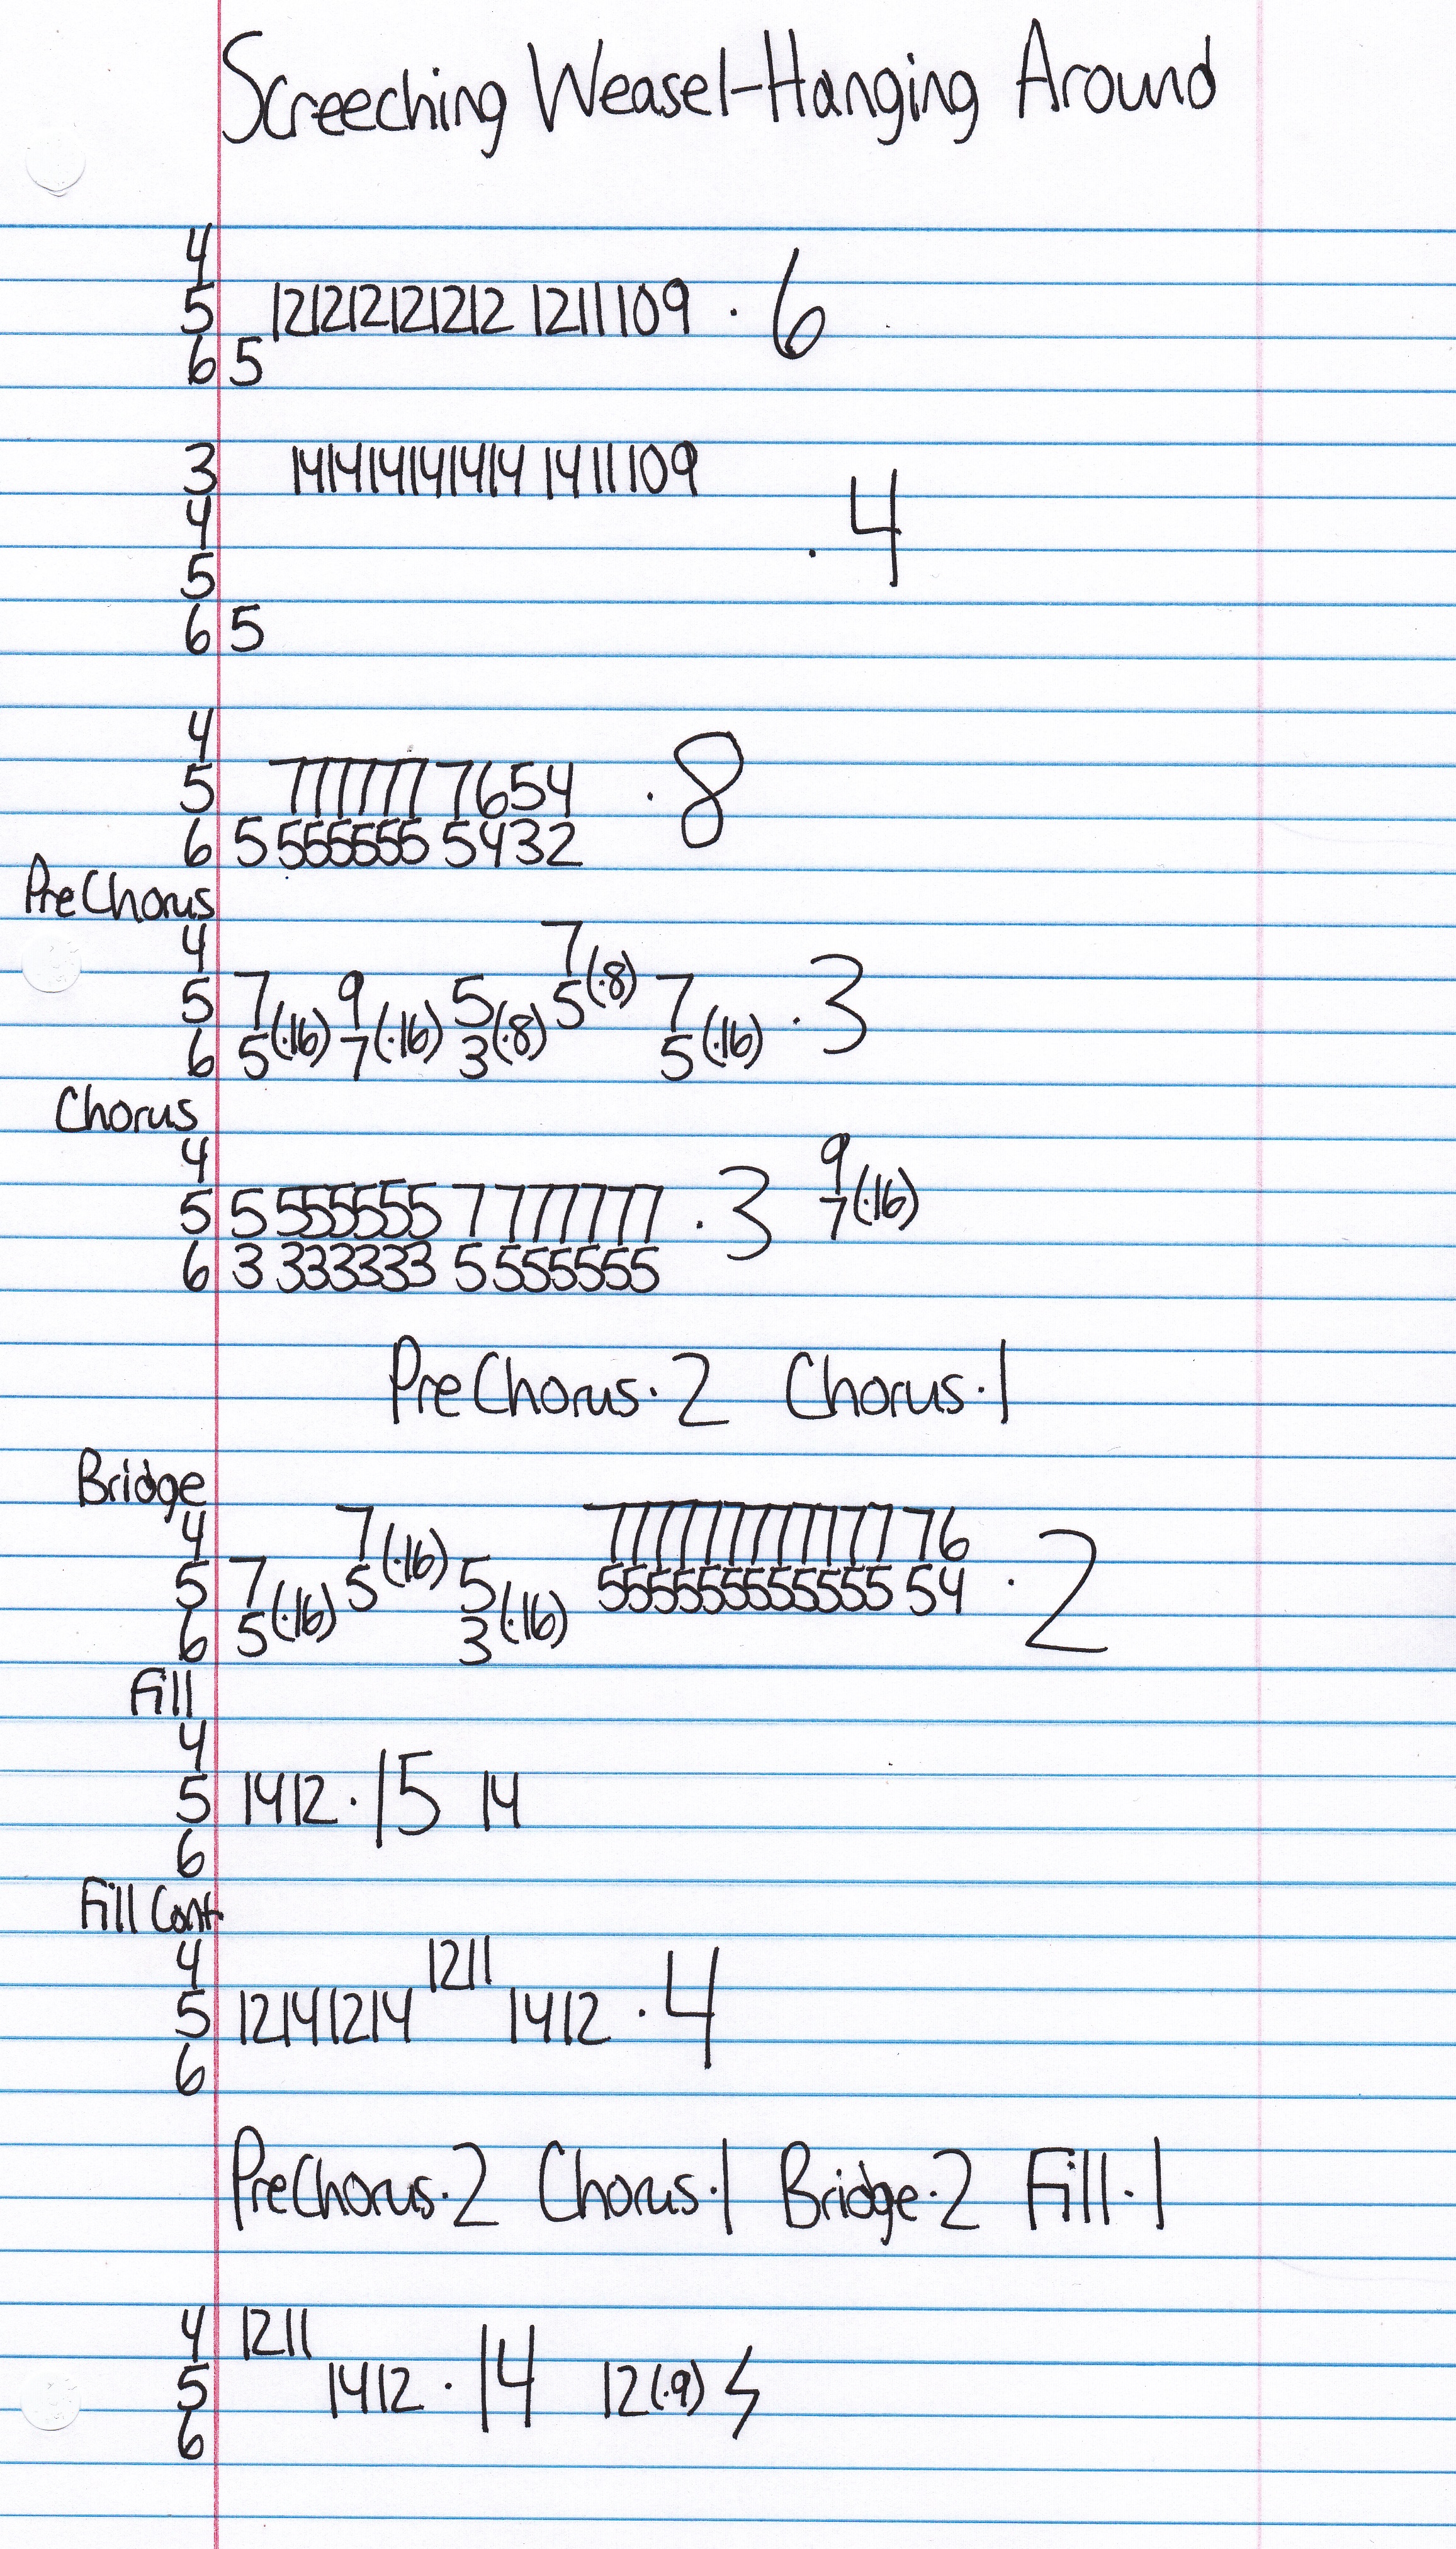 Screeching Weasel-Hanging Around
4
5 121212121212 1211109 · 6
6 5
3 141414141414 1411109
4 · 4
5
6 5
4
5 777777 7654 · 8
6 5 555555 5432
PreChorus
4 7
5 7 9 5 5(·8) 7 · 3
6 5(·16) 7(·16) 3(·8) 5(·16)
Chorus
4 9
5 5 555555 7 777777 · 3 7(·16)
6 3 333333 5 555555
PreChorus·2 Chorus·1
Bridge
4 7 777777777777 76
5 7 5(·16) 5 555555555555 54 · 2
6 5(·16) 3(·16)
Fill
4
5 1412 · 15 14
6
Fill Cont.
4 1211
5 12141214 1412 · 4
6
PreChorus·2 Chorus·1 Bridge·2 Fill·1
4 1211
5 1412 · 14 12(·9)
6